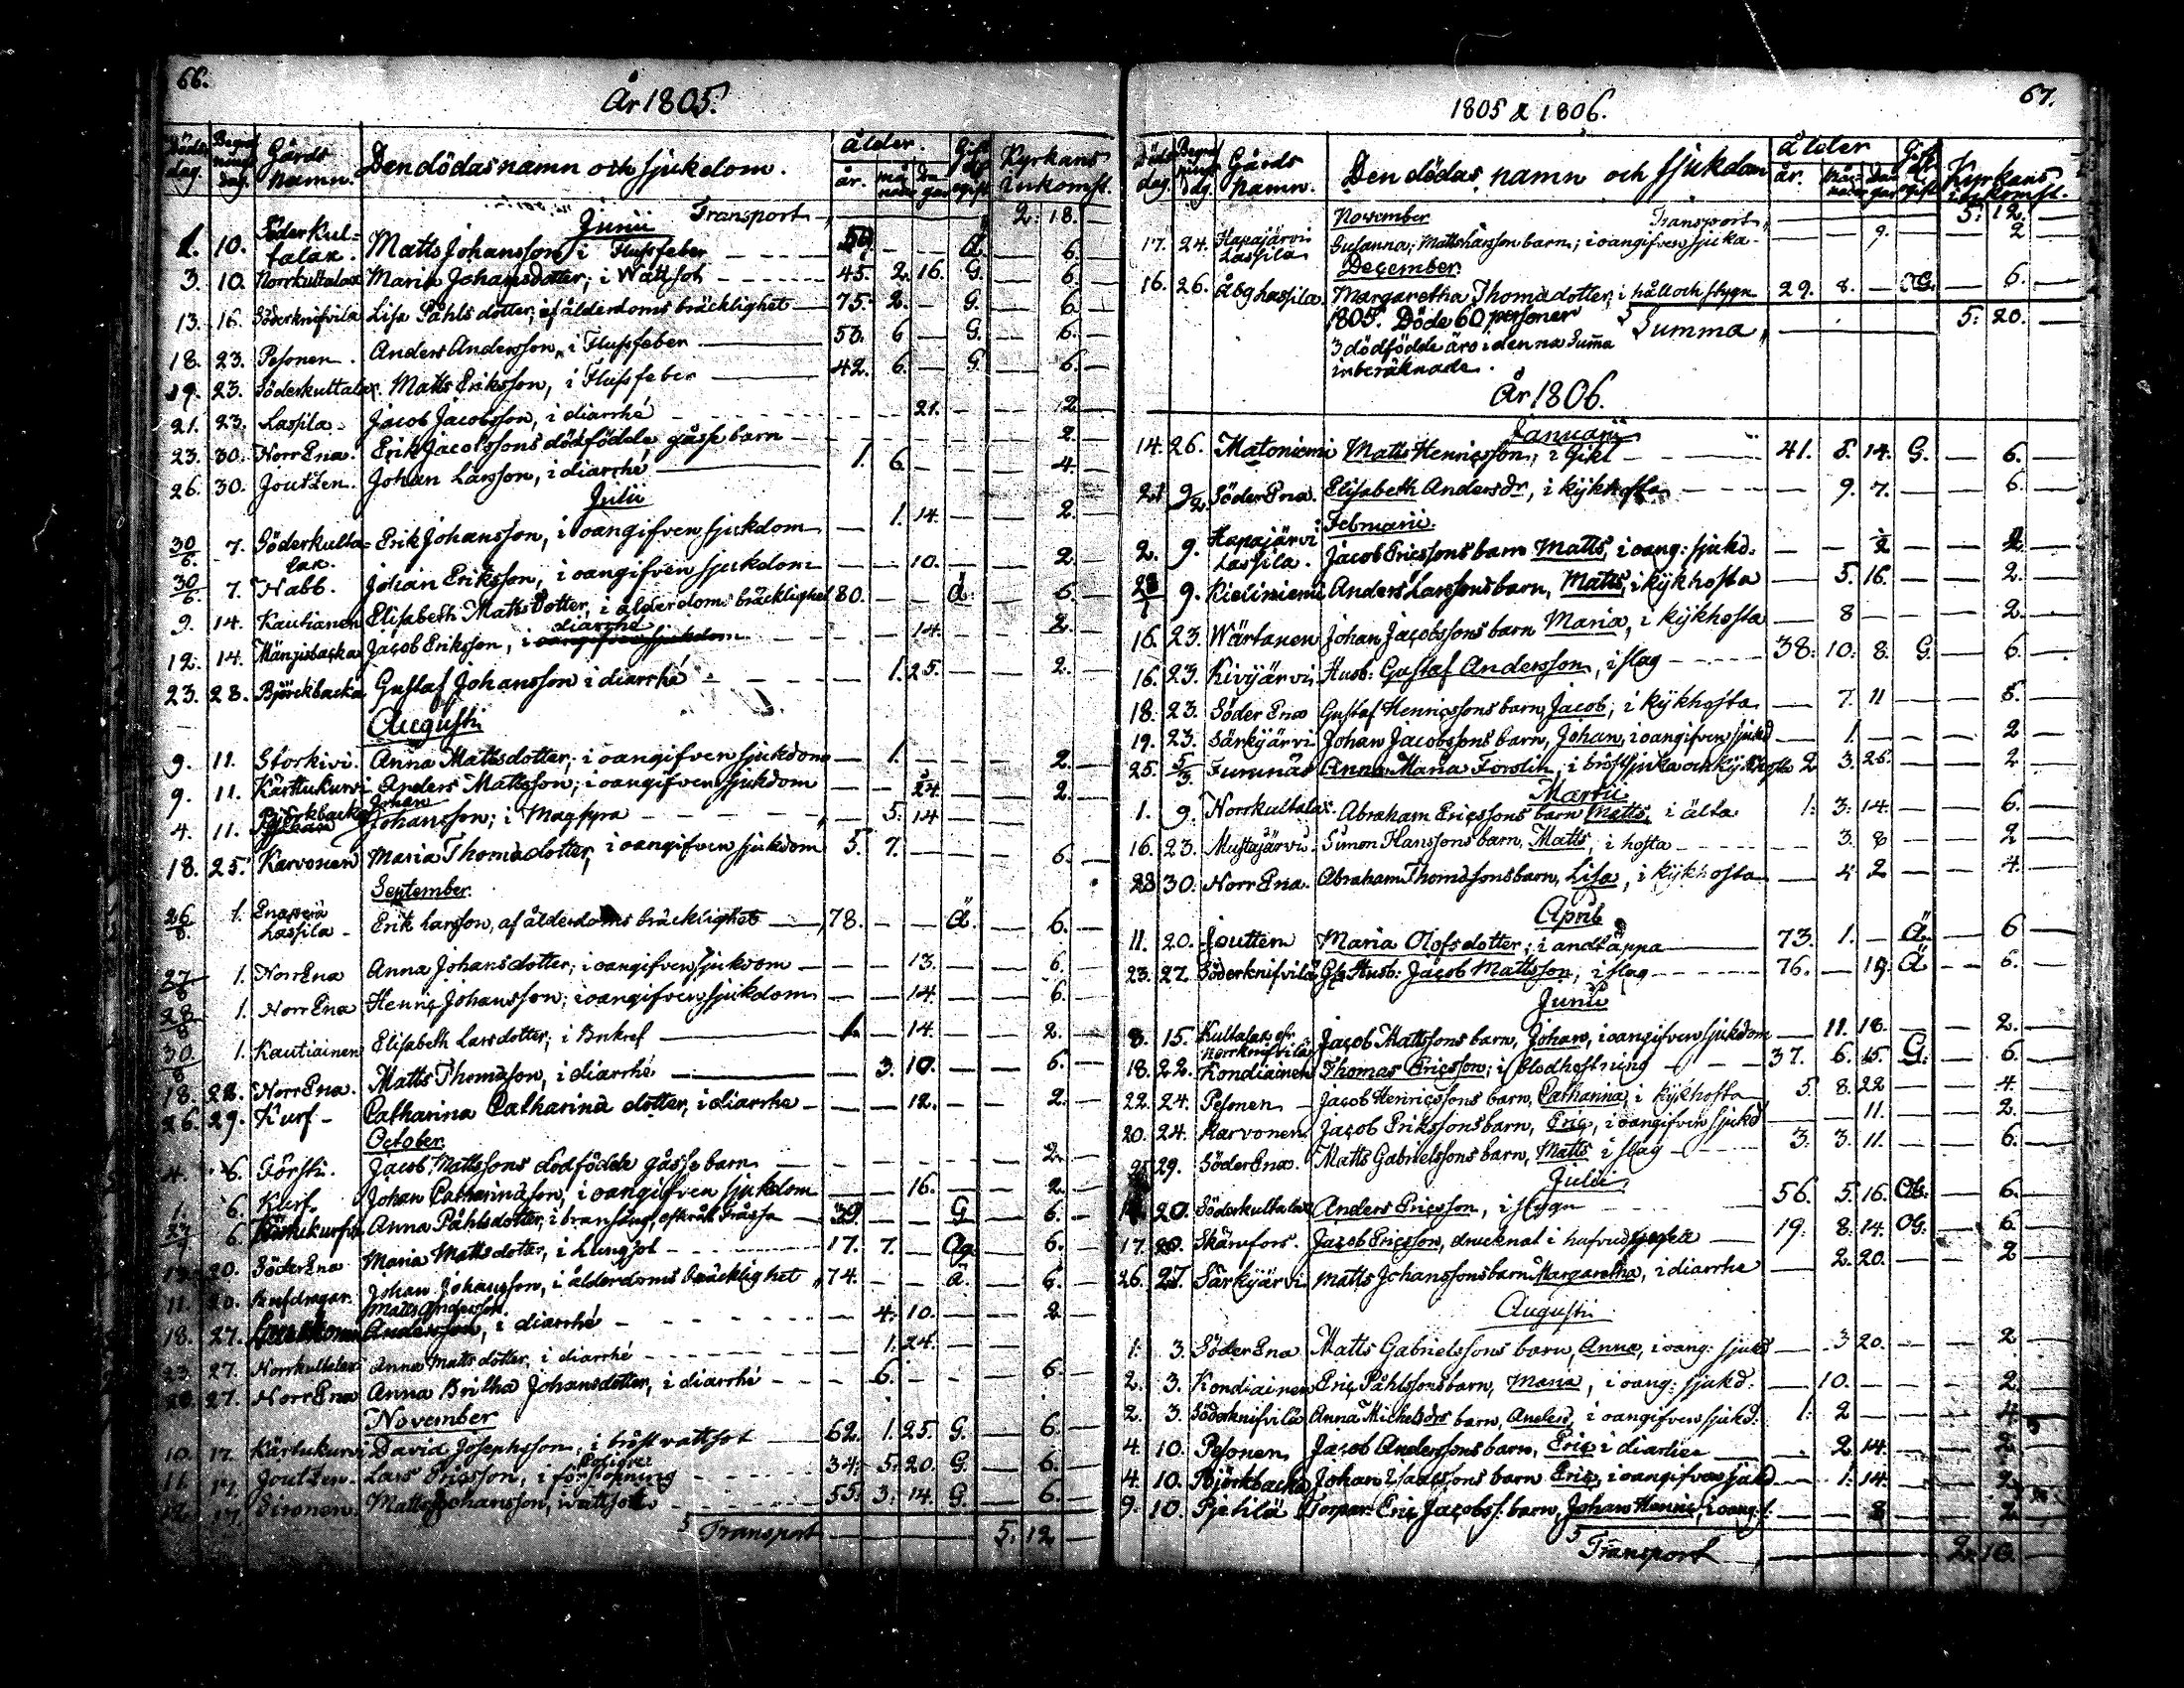 66.
År 1805.
Döds dag. Begrafnings dag. Gårds namn. Den dödas namn och sjukdom. ålder år. må nader da gar Gift el. ogift. Kyrkans Inkomst.
Junii Transport 2. 18. —
1. 10. Söderkul=talax. Matts Johansson i Flussfeber — — Ä. — 6. —
3. 10. Norrkultalax Maria Johansdotter; i Wattsot 45. 2. 16. G. — 6. —
13. 16. Söderknifvila Lisa Påhls dotter; af ålderdoms bräcklighet 75. 2. — G. — 6. —
18. 23. Pesonen. Anders Andersson, i Flussfeber 53. 6 — G. — 6. —
19. 23. Söderkultalax. Matts Eriksson, i Flussfeber 42. 6. — G. — 6. —
21. 23. Lassila. Jacob Jacobsson, i diarrhé — — 21. — — 2
23. 30. Norr Ena. Erik Jacobssons dödfödde gåsse barn — — — — — 2.
26. 30. Joutzen. Johan Larsson, i diarrhé 1. 6. — — — 4. —
Julii
30/6. 7. Söderkulta=lax. Erik Johansson, i oangifven sjukdom — 1. 14. — — 2. —
30/6. 7. Nabb. Johan Eriksson, i oangifven sjukdom — — 10. — — 2. —
9. 14. Kautianen Elisabeth Matts dotter, i ålderdoms bräcklighet 80. — — Ä. — 6. —
diarrhé
12. 14. Mängsbacka Jacob Eriksson, i oangifven sjukdom — — 14. — — 2. —
23. 28. Björckbacka Gustaf Johansson i diarrhé — 1. 25. — — 2. —
Augusti
9. 11. Storkivi. Anna Mattsdotter; i oangifven sjukdom — 1. — — — 2. —
9. 11. Kärttukurvi Anders Mattsson; i oangifven sjukdom — — 24. — — 2. —
Björkbacka Johan
4. 11. Johansson; i Magsyra — 5. 14 — — —
18. 25. Karvonen Maria Thomædotter, i oangifven sjukdom 5. 7. — — — 6. —
September.
26/8. 1. Enaperä Lassila Erik Larsson, af ålderdoms bräcklighet 78. — — Ä. — 6. —
27/8 1. Norr Ena Anna Johansdotter; i oangifven sjukdom — — 13. — — 6. —
28/8 1. Norr Ena Henric Johansson; i oangifven sjukdom — — 14. — — 6. —
30/8 1. Kautiainen Elisabeth Larsdotter; i Bukref 1. — 14. — — 2. —
18. 22. Norr Ena. Matts Thomæson, i diarrhé — 3. 10. — — 6. —
26. 29. Kurf Catharina Catharinæ dotter, i diarrhe — — 12. — — 2. —
October.
4. 6. Försti. Jacob Mattssons dödfödda gåsse barn — — — — — 2. —
1. 6. Kurf. Johan Catharinæson, i oangifven sjukdom — — 16. — — 2. —
6. Anna Påhlsdotter, i 39. — — G — 6. —
20. Söder Ena Maria Mattsdotter, i Lungsot 17. 7. — Og. — 6. —
11. 20. Johan Johansson, i ålderdoms bräcklighet 74. — — Ä. — 6. —
Matts Andersson.
18. 27. Andersson, i diarrhé — 4. 10. — — 2. —
23. 27. Norrkultalax Anna Mattsdotter, i diarrhé — 1. 24. — —
27. Norr Ena Anna Britha Johansdotter, i diarrhé — 6. — — — 6. —
November
10. 17. Kärtukurvi David Josephsson, i bröst vattsot 62. 1. 25. G. — 6. —
11. 17. Joutzen. Lars Ericsson, i förstoppning 34. 5. 20. G. — 6. —
17. Sironen. Matts Johansson, i vattsot 55. 3. 14. G — 6. —
Transport 5. 12 —
1805 & 1806.
67.
Döds dag. Begrafnings dg. Gårds namn. Den dödas namn och sjukdom ålder år. må nader da gar Gift el. ogift Kyrkans inkomst.
November Transport 5. 12. —
17. 24. Hapajärvi Lassila Susanna; Matts Larsson barn; i oangifven sjuka — — 9. — — 2 —
December.
16. 26. Åbghassila. Margaretha Thomædotter; i håll och stygn 29. 8. — OG. — 6. —
1805. Döde 60 personer Summa 5. 20. —
3 dödfödde äro i denna Summa
inberäknade.
År 1806.
Januarii
14. 26. Matoniemi Matts Henricsson; i Gikt 41. 8. 14. G. — 6. —
21 9/2 Söder Ena. Elisabeth Andersdr, i kykhosta — 9. 7. — — 6. —
Februarii.
2. 9. Hapajärvi Lassila. Jacob Ericssons barn Matts, i oang: sjukd: — — 1/2 — — 2 —
28/1 9. Kieliniemi Anders Larssons barn, Matts, i kykhosta — 5. 16. — — 2. —
16. 23. Wärtanen Johan Jacobssons barn Maria, i kykhosta — 8 — — — 2. —
16. 23. Kivijärvi Husb: Gustaf Andersson, i slag 38. 10. 8. G. — 6. —
18. 23. Söder Ena Gustaf Henricssons barn, Jacob; i kykhosta — 7. 11 — — 6. —
19. 23. Särkijärvi Johan Jacobssons barn, Johan, i oangifven sjukd — 1. — — — 2 —
25. 5/3 Jumnäs Anna Maria Forslin, i bröstsjuka och kykhosta 2 3. 25. — — 2 —
Martii
1. 9. Norrkultalax. Abraham Ericssons barn Matts, i älta 1. 3. 14. — — 6. —
16. 23. Mustajärvi. Simon Hanssons barn, Matts, i hosta — 3. 8 — — 2 —
28 30. Norr Ena. Abraham Thomæsons barn, Lisa, i kykhosta — 4 2 — — 4. —
April
11. 20. Joutten Maria Olofsdotter; i andtäppa 73. 1. — Ä. — 6 —
23. 27. Söderknifvila Gle Husb: Jacob Mattsson, i slag 76. — 19 Ä — 6. —
Junii
8. 15. Kultalax el. Norrknifvila Jacob Mattssons barn, Johan, i oangifven sjukdom — 11. 18. — — 2. —
18. 22. Kondiainen Thomas Ericsson; i Blodhostning 37. 6. 15. G. — 6. —
22. 24. Pesonen Jacob Henricssons barn, Catharina, i kykhosta 5. 8. 22 — — 4. —
20. 24. Karvonen. Jacob Erikssons barn, Eric, i oangifven sjukd — — 11. — — 2. —
25 29. Söder Ena. Matts Gabrielssons barn, Matts i slag 3. 3. 11. — — 6. —
Julii
20. Söderkultalax Anders Ericsson, i stygn 56. 5. 16. OG. — 6. —
17. 20. Skärufors. Jacob Ericsson, drucknat i hafvud 19. 8. 14. OG. — 6. —
26. 27. Särkijärvi Matts Johanssons barn Margaretha, i diarrhe — 2. 20. — — 2 —
Augusti
1. 3. Söder Ena Matts Gabrielssons barn, Anna, i oang: sjukd — 3 20. — — 2 —
2. 3. Kondiainen Eric Påhlssons barn, Maria, i oang: sjukd: — 10. — — — 2. —
2. 3. Söderknifvila Anna Michelsdrs barn, Anders, i oangifven sjukd: 1. 2 — — — 4 —
4. 10. Pesonen Jacob Anderssons barn, Eric i diarhe — 2 14. — — 2. —
4. 10. Björkbacka Johan Isaacssons barn Eric, i oangifven sjukd — 1. 14. — — 2. —
9. 10. Pjetilä Torpar. Eric Jacobss. barn, Johan Henric, i oang. s. — — 8 — — 2 —
Transport 2. 10. —